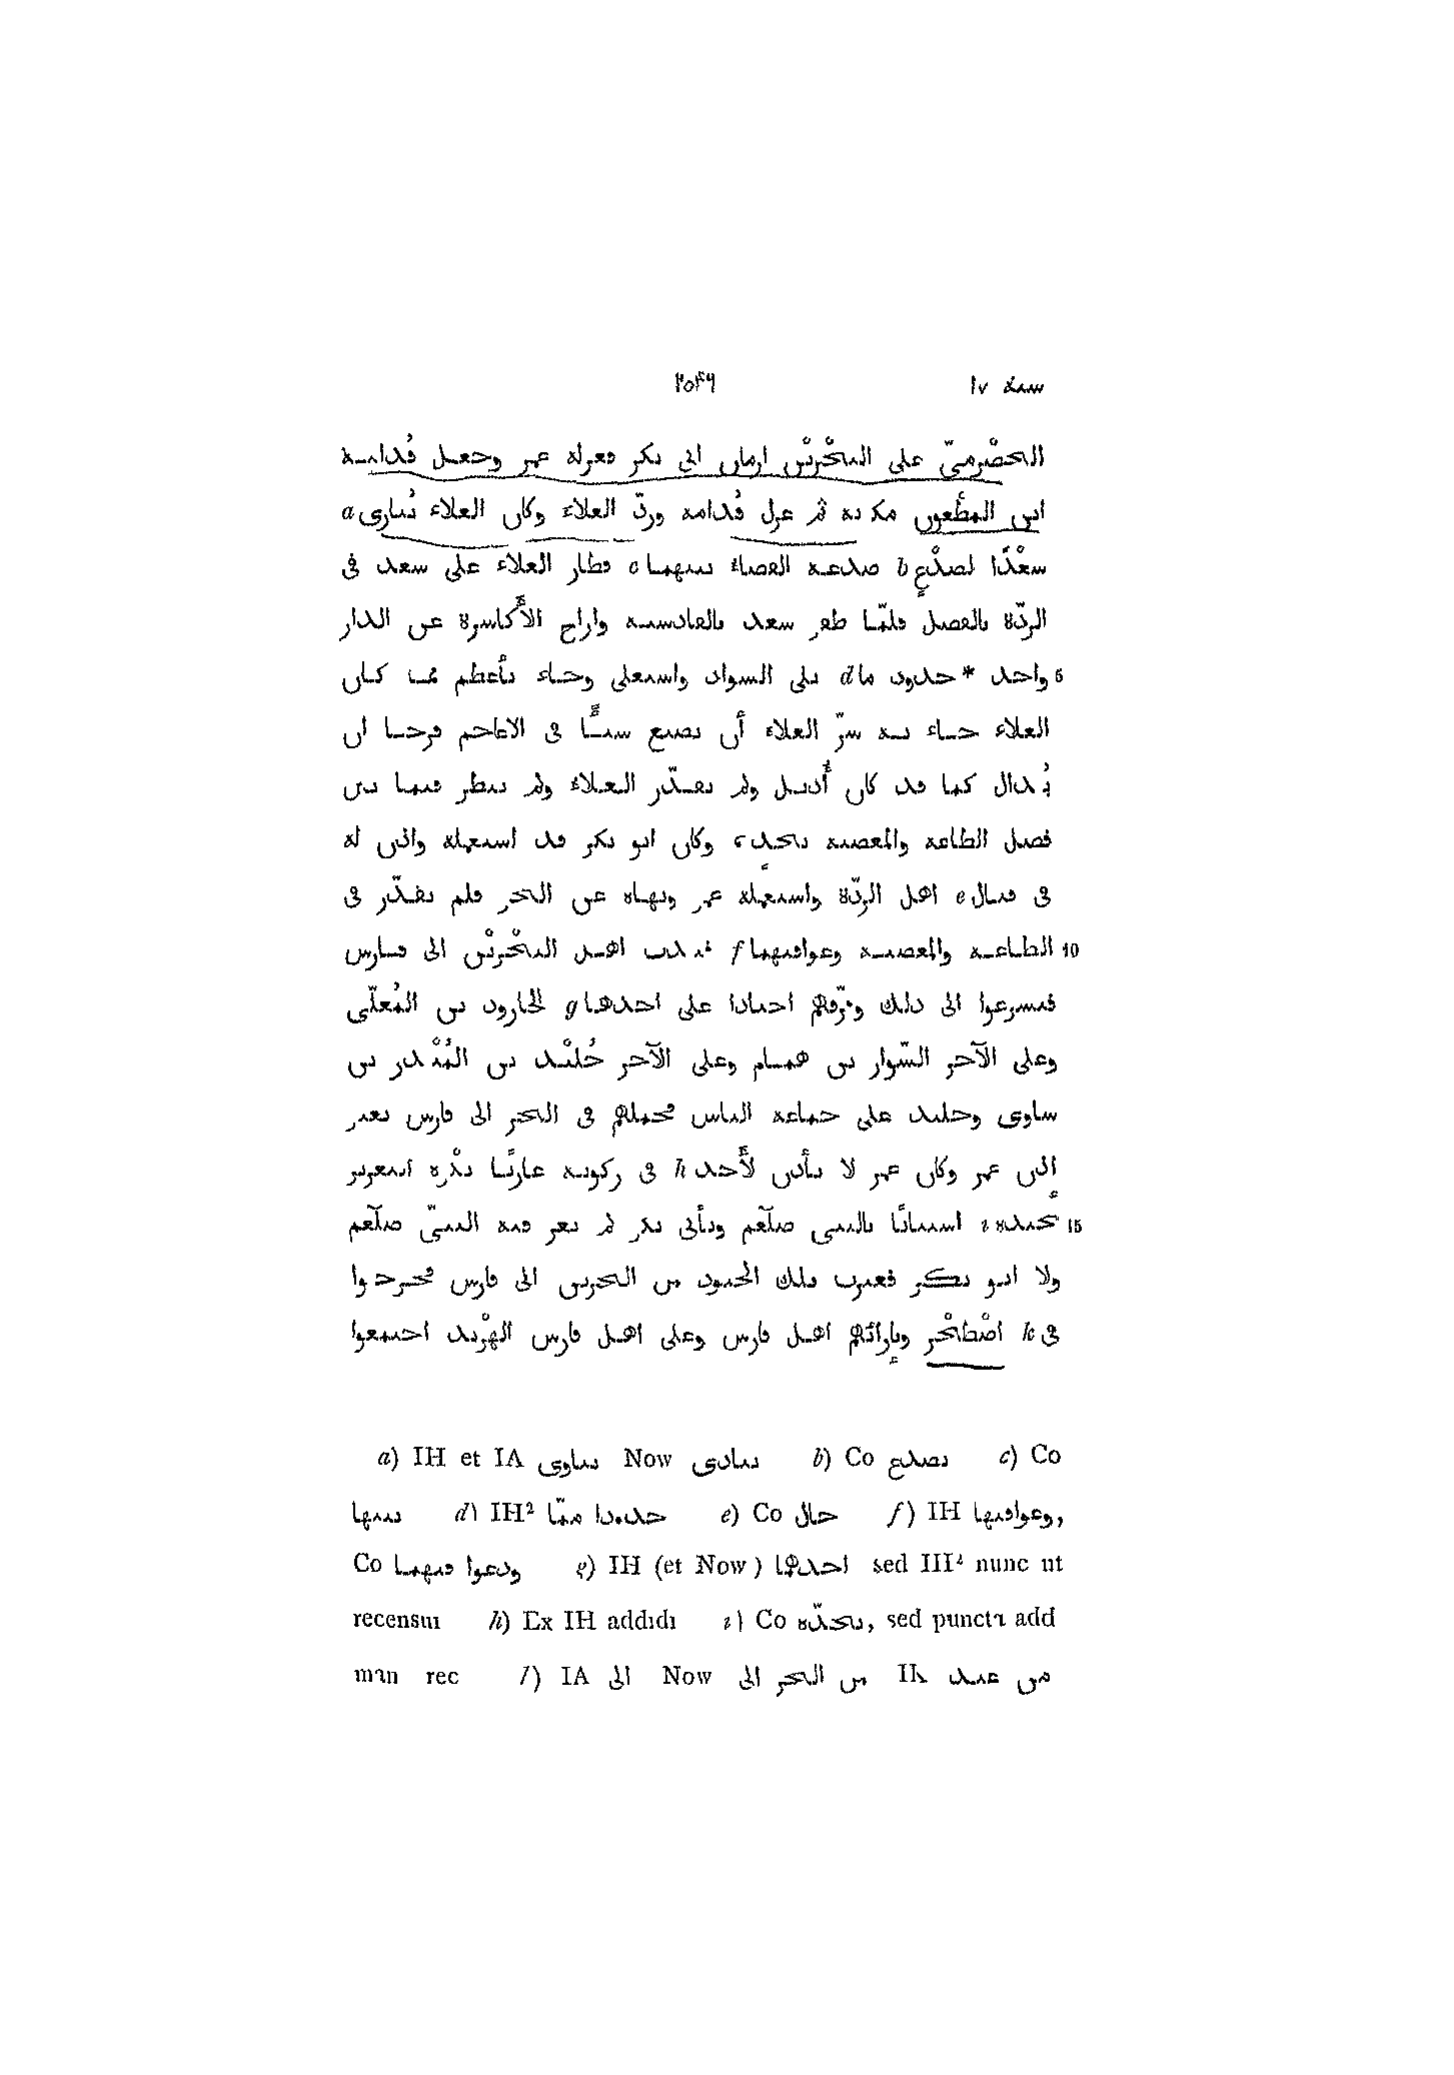 سنة ١٧ ٢٥٤٦
الحَضْرميّ على البَحْرَيْن ازمان ابى بكر فعزله عمر وجعل قُدامة
ابن المظْعون مكانه ثم عزل قُدامة وردّ العلاء وكان العلاء يُبارى a
سعْدًا لصدْعٍ b صدعه القضاء بينهما c فطار العلاء على سعد فى
الردّة بالفضل فلمّا ظفر سعد بالقادسية وازاح الأَكاسرة عن الدار
5 واخذ *حدود ما d يلى السواد واستعلى وجاء بأعظم مما كان
العلاء جاء به سرّ العلاء أن يصنع شيئًا فى الاعاجم فرجا ان
يُدال كما قد كان أُديل ولم يقدّر العلاء ولم ينظر فيما بين
فضل الطاعة والمعصية بجِدّ وكان ابو بكر قد استعمله واذن له
فى قتال e اهل الردّة واستعمله عمر ونهاه عن البحر فلم يقدّر فى
10 الطاعة والمعصية وعواقبهما f فندب اهل البَحْرَيْن الى فارس
فتسرعوا الى ذلك وفرّقهم اجنادا على احدها g الجارود بن المُعلّى
وعلى الآخر السّوار بن همام وعلى الآخر خُليْد بن المُنْذر بن
ساوى وخليد على جماعة الناس فحملهم فى البحر الى فارس بغير
إذن عمر وكان عمر لا يأذن لأَحد h فى ركوبه غازيًا يكْره التغرير
15 بجُنده i استنانًا بالنبى صلّعم وبأبى بكر لم يغز فيه النبىّ صلّعم
ولا ابو بكر فعبرت تلك الجنود من البحرين الى فارس فخرجوا
فى k اصْطَخْر وبإزائهم اهل فارس وعلى اهل فارس الهِرْبذ اجتمعوا
a) IH et IA يناوى Now ينادى b) Co بصدع c) Co
بينها d) IH² حدودا ممّا e) Co حال f) IH وعواقبها,
Co ودعوا فيهما g) IH (et Now) احدهما sed IH² nunc ut
recensui h) Ex IH addidi i) Co بجدّه, sed puncta add
man rec l) IA الى Now من البحر الى IK من عند